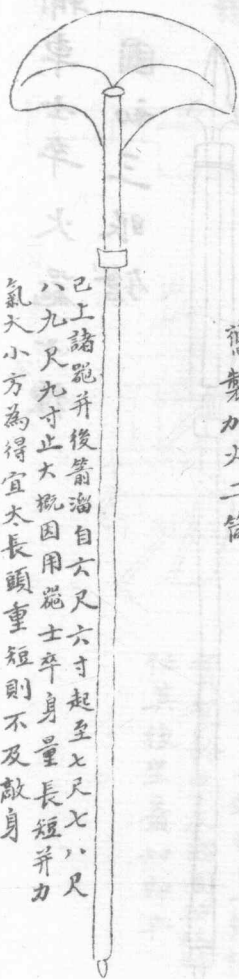 舊製加火二筒
已上諸器并後箭溜自六尺六寸起至七尺七八尺
八九尺九寸止大概因用器士卒身量長短并力
氣大小方為得宜太長頭重短則不及敵身